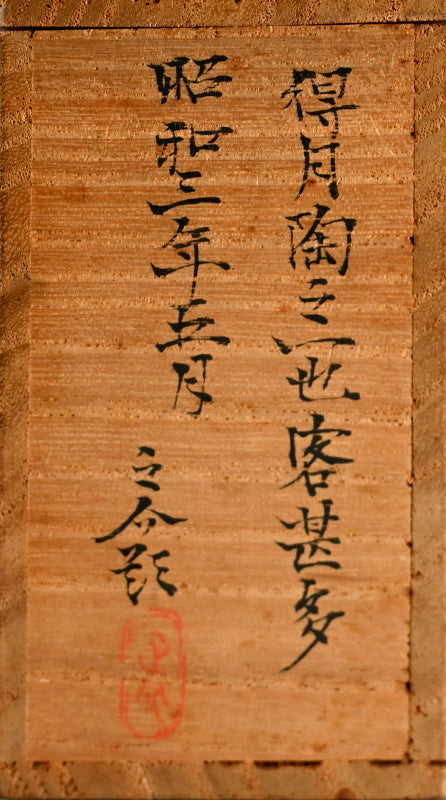 得月陶之一也客甚多
昭和三年五月
之介題